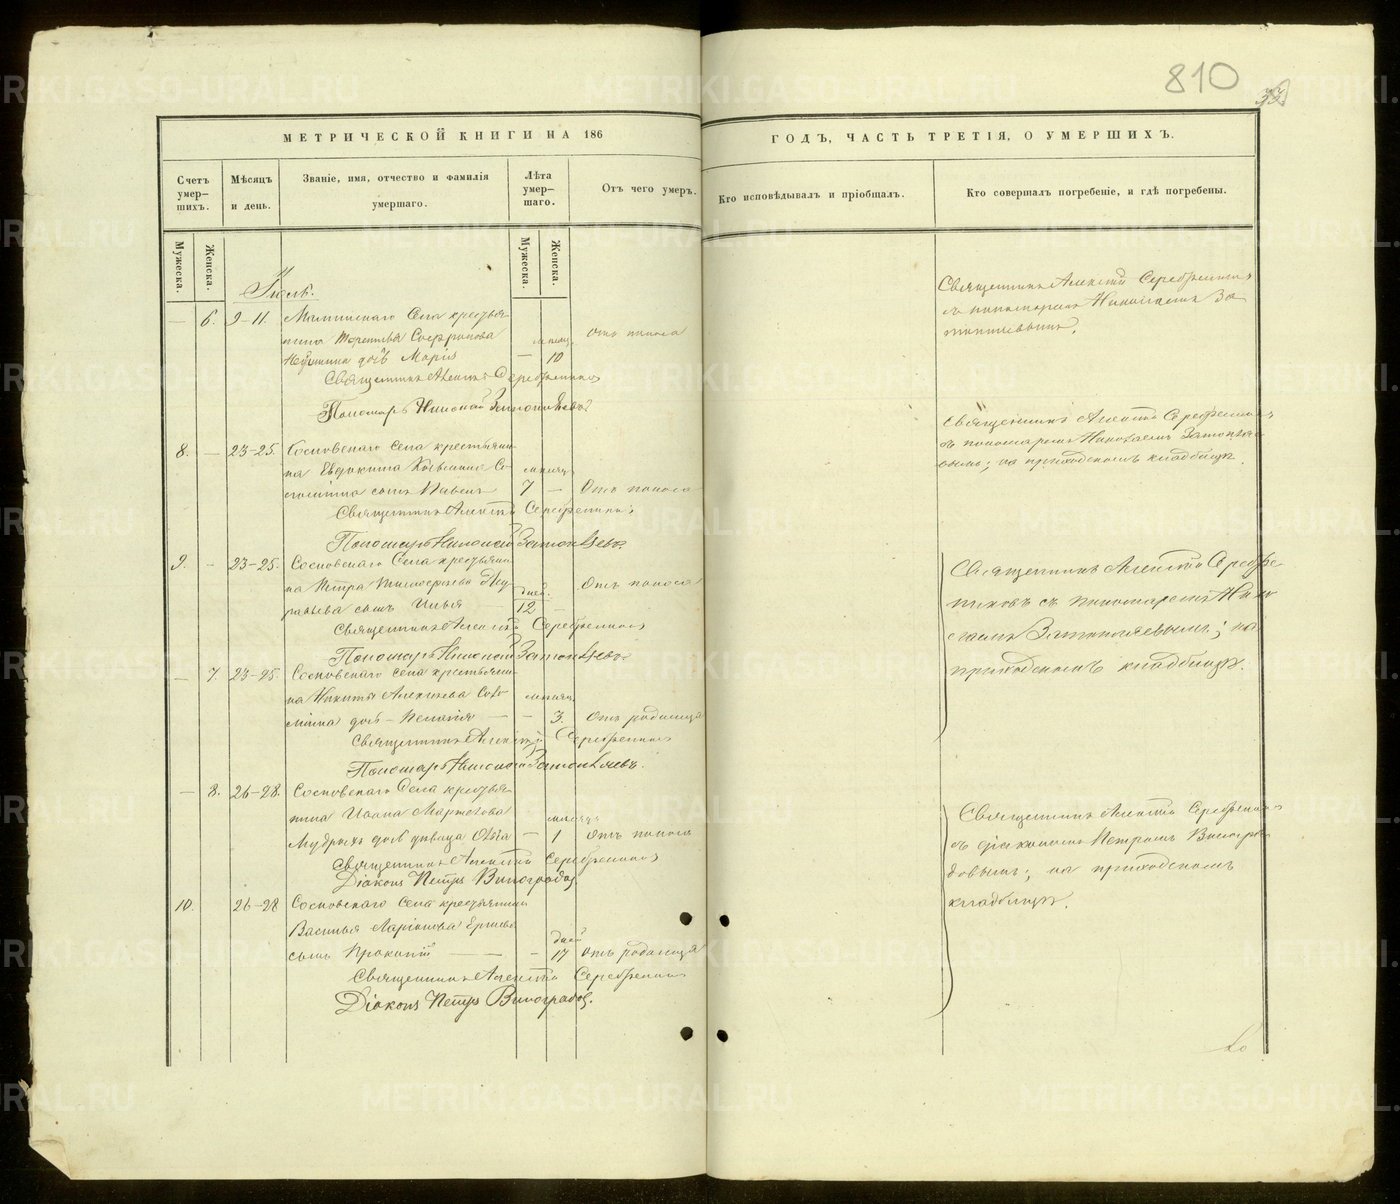 810
33
МЕТРИЧЕСКОЙ КНИГИ НА 186
ГОДЪ, ЧАСТЬ ТРЕТІЯ, О УМЕРШИХЪ.
Счетъ умер-
шихъ.
Мѣсяцъ
и день.
Званіе, имя, отчество и фамилія
умершаго.
Лѣта
умер-
шаго.
Отъ чего умеръ.
Кто исповѣдывалъ и пріобщалъ.
Кто совершалъ погребеніе, и гдѣ погребены.
Мужеска.
Женска.
Мужеска.
Женска.
Іюль.
— 6. 9-11. Маминскаго Села крестья-
нина Терентья Софронова
дочь Марія — 10 Отъ поноса
Священникъ Алексій Серебренниковъ
Пономарь Николай
Священникъ Алексій Серебренниковъ
съ пономаремъ Николаемъ
8. — 23-25. Сосновскаго Села крестьяни-
на Евдокима Козьмина Со-
сынъ Павелъ 7 — Отъ поноса
Священникъ Алексій Серебренниковъ
Пономарь Николай
Священникъ Алексій Серебренниковъ
съ пономаремъ Николаемъ
вымъ; на приходскомъ кладбищѣ.
9. — 23-25. Сосновскаго Села крестьяни-
на Петра Тимофеева Му-
равьева сынъ Илья дней 12 — Отъ поноса
Священникъ Алексій Серебренниковъ
Пономарь Николай
Священникъ Алексій Серебре-
никовъ съ пономаремъ Нико-
лаемъ на
приходскомъ кладбищѣ.
— 7 23-25. Сосновскаго Села крестьяни-
на Никиты Алексѣева Соло-
мина дочь Пелагія — — 3. Отъ родимца
Священникъ Алексій Серебренниковъ
Пономарь Николай
— 8. 26-28. Сосновскаго Села крестья-
нина Ивана
Мудрыхъ дочь дѣвица — 1 Отъ поноса
Священникъ Алексій Серебренниковъ
Діаконъ Петръ Виноградовъ.
Священникъ Алексій Серебренниковъ
съ діакономъ Петромъ Виногра-
довымъ; на приходскомъ
кладбищѣ.
10. 26-28 Сосновскаго Села крестьянина
Василья Ларіонова
сынъ Прокопій — — — дней 17 Отъ родимца
Священникъ Алексій Серебренниковъ
Діаконъ Петръ Виноградовъ.
METRIKI.GASO-URAL.RU